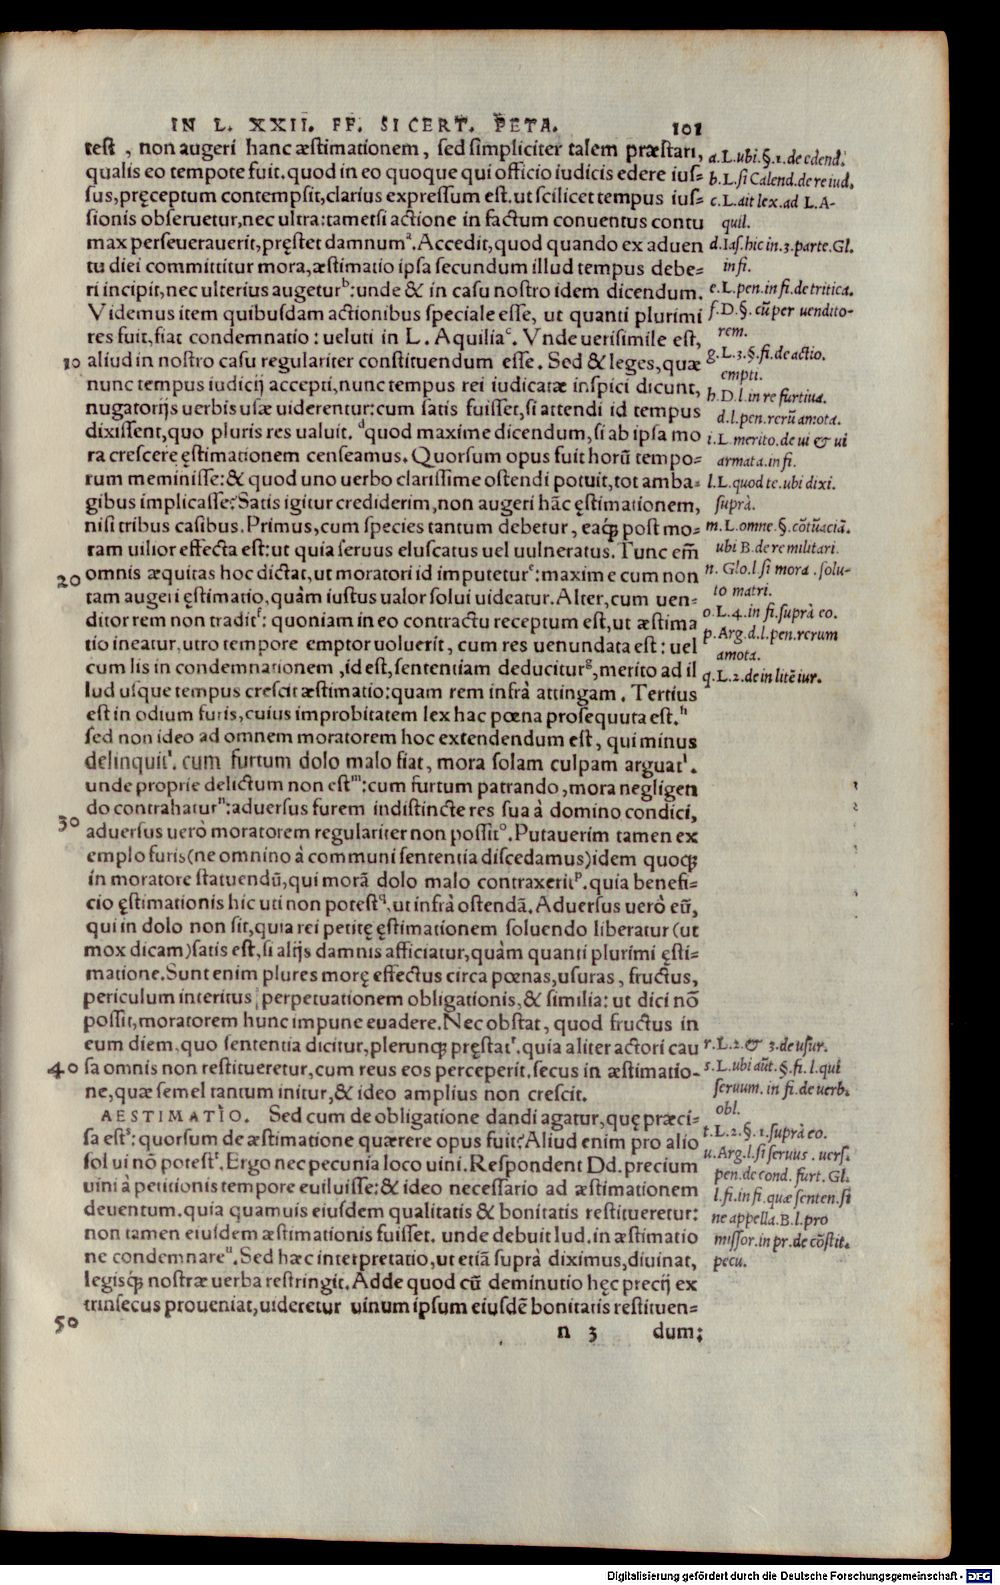 IN L. XXII. FF. SI CERT. PETA. 101
test, non augeri hanc æstimationem, sed simpliciter talem præstari,
qualis eo tempote fuit. quod in eo quoque qui officio iudicis edere ius-
sus, pręceptum contempsit, clarius expressum est. ut scilicet tempus ius-
sionis obseruetur, nec ultra: tametsi actione in factum conuentus contu
max perseuerauerit, pręstet damnumᵃ. Accedit, quod quando ex aduen
tu diei committitur mora, æstimatio ipsa secundum illud tempus debe-
ri incipit, nec ulterius augeturᵇ: unde & in casu nostro idem dicendum.
Videmus item quibusdam actionibus speciale esse, ut quanti plurimi
res fuit, fiat condemnatio: ueluti in L. Aquiliaᶜ. Vnde uerisimile est,
10 aliud in nostro casu regulariter constituendum esse. Sed & leges, quæ
nunc tempus iudicij accepti, nunc tempus rei iudicatæ inspici dicunt,
nugatorijs uerbis usæ uiderentur: cum satis fuisset, si attendi id tempus
dixissent, quo pluris res ualuit. ᵈquod maxime dicendum, si ab ipsa mo
ra crescere ęstimationem censeamus. Quorsum opus fuit horū tempo-
rum meminisse: & quod uno uerbo clarissime ostendi potuit, tot amba-
gibus implicasse? Satis igitur crediderim, non augeri hāc ęstimationem,
nisi tribus casibus. Primus, cum species tantum debetur, eaq; post mo-
ram uilior effecta est: ut quia seruus eluscatus uel uulneratus. Tunc em̄
20 omnis æquitas hoc dictat, ut moratori id imputeturᵉ: maxime cum non
tam augeri ęstimatio, quàm iustus ualor solui uideatur. Alter, cum uen-
ditor rem non traditᶠ: quoniam in eo contractu receptum est, ut æstima
tio ineatur, utro tempore emptor uoluerit, cum res uenundata est: uel
cum lis in condemnationem, id est, sententiam deduciturᵍ, merito ad il
lud usque tempus crescit æstimatio: quam rem infrà attingam. Tertius
est in odium furis, cuius improbitatem lex hac pœna prosequuta est.ʰ
sed non ideo ad omnem moratorem hoc extendendum est, qui minus
delinquitⁱ. cum furtum dolo malo fiat, mora solam culpam arguatˡ.
unde proprie delictum non estᵐ: cum furtum patrando, mora negligen
do contrahaturⁿ: aduersus furem indistincte res sua à domino condici,
30 aduersus uerò moratorem regulariter non possitᵒ. Putauerim tamen ex
emplo furis (ne omnino à communi sententia discedamus) idem quoq;
in moratore statuendū, qui morā dolo malo contraxeritᵖ. quia benefi-
cio ęstimationis hic uti non potest^q. ut infrà ostendā. Aduersus uerò eū,
qui in dolo non sit, quia rei petitę ęstimationem soluendo liberatur (ut
mox dicam) satis est, si alijs damnis afficiatur, quàm quanti plurimi ęsti-
matione. Sunt enim plures morę effectus circa pœnas, usuras, fructus,
periculum interitus, perpetuationem obligationis, & similia: ut dici nō
possit, moratorem hunc impune euadere. Nec obstat, quod fructus in
eum diem, quo sententia dicitur, plerunq; pręstatʳ. quia aliter actori cau
40 sa omnis non restitueretur, cum reus eos perceperit. secus in æstimatio-
ne, quæ semel tantum initur, & ideo amplius non crescit.
AESTIMATIO. Sed cum de obligatione dandi agatur, quę præci-
sa estˢ: quorsum de æstimatione quærere opus fuit? Aliud enim pro alio
solui nō potestᵗ. Ergo nec pecunia loco uini. Respondent Dd. precium
uini à petitionis tempore euiluisse: & ideo necessario ad æstimationem
deuentum. quia quamuis eiusdem qualitatis & bonitatis restitueretur:
non tamen eiusdem æstimationis fuisset. unde debuit Iud. in æstimatio
ne condemnareᵘ. Sed hæc interpretatio, ut etiā suprà diximus, diuinat,
legisq; nostræ uerba restringit. Adde quod cū deminutio hęc precij ex
trinsecus proueniat, uideretur uinum ipsum eiusdē bonitatis restituen-
50
n 3 dum:
a. L. ubi. §. 1. de edend.
b. L. si Calend. de re iud.
c. L. ait lex. ad L. A-
quil.
d. Ias. hic in. 3. parte. Gl.
in fi.
e. L. pen. in fi. de tritica.
f. D. §. cū per uendito-
rem.
g. L. 3. §. fi. de actio.
empti.
h. D. l. in re furtiua.
d. l. pen. rerū amota.
i. L. merito. de ui & ui
armata. in fi.
l. L. quod te. ubi dixi.
suprà.
m. L. omne. §. cōtūaciā.
ubi B. de re militari.
n. Glo. l. si mora. solu-
to matri.
o. L. 4. in fi. suprà eo.
p. Arg. d. l. pen. rerum
amota.
q. L. 2. de in litē iur.
r. L. 2. & 3. de usur.
s. L. ubi aūt. §. fi. l. qui
seruum. in fi. de uerb.
obl.
t. L. 2. §. 1. suprà eo.
u. Arg. l. si seruus. uers.
pen. de cond. furt. Gl.
l. fi. in fi. quæ senten. si
ne appella. B. l. pro
missor. in pr. de cōstit.
pecu.
Digitalisierung gefördert durch die Deutsche Forschungsgemeinschaft - DFG